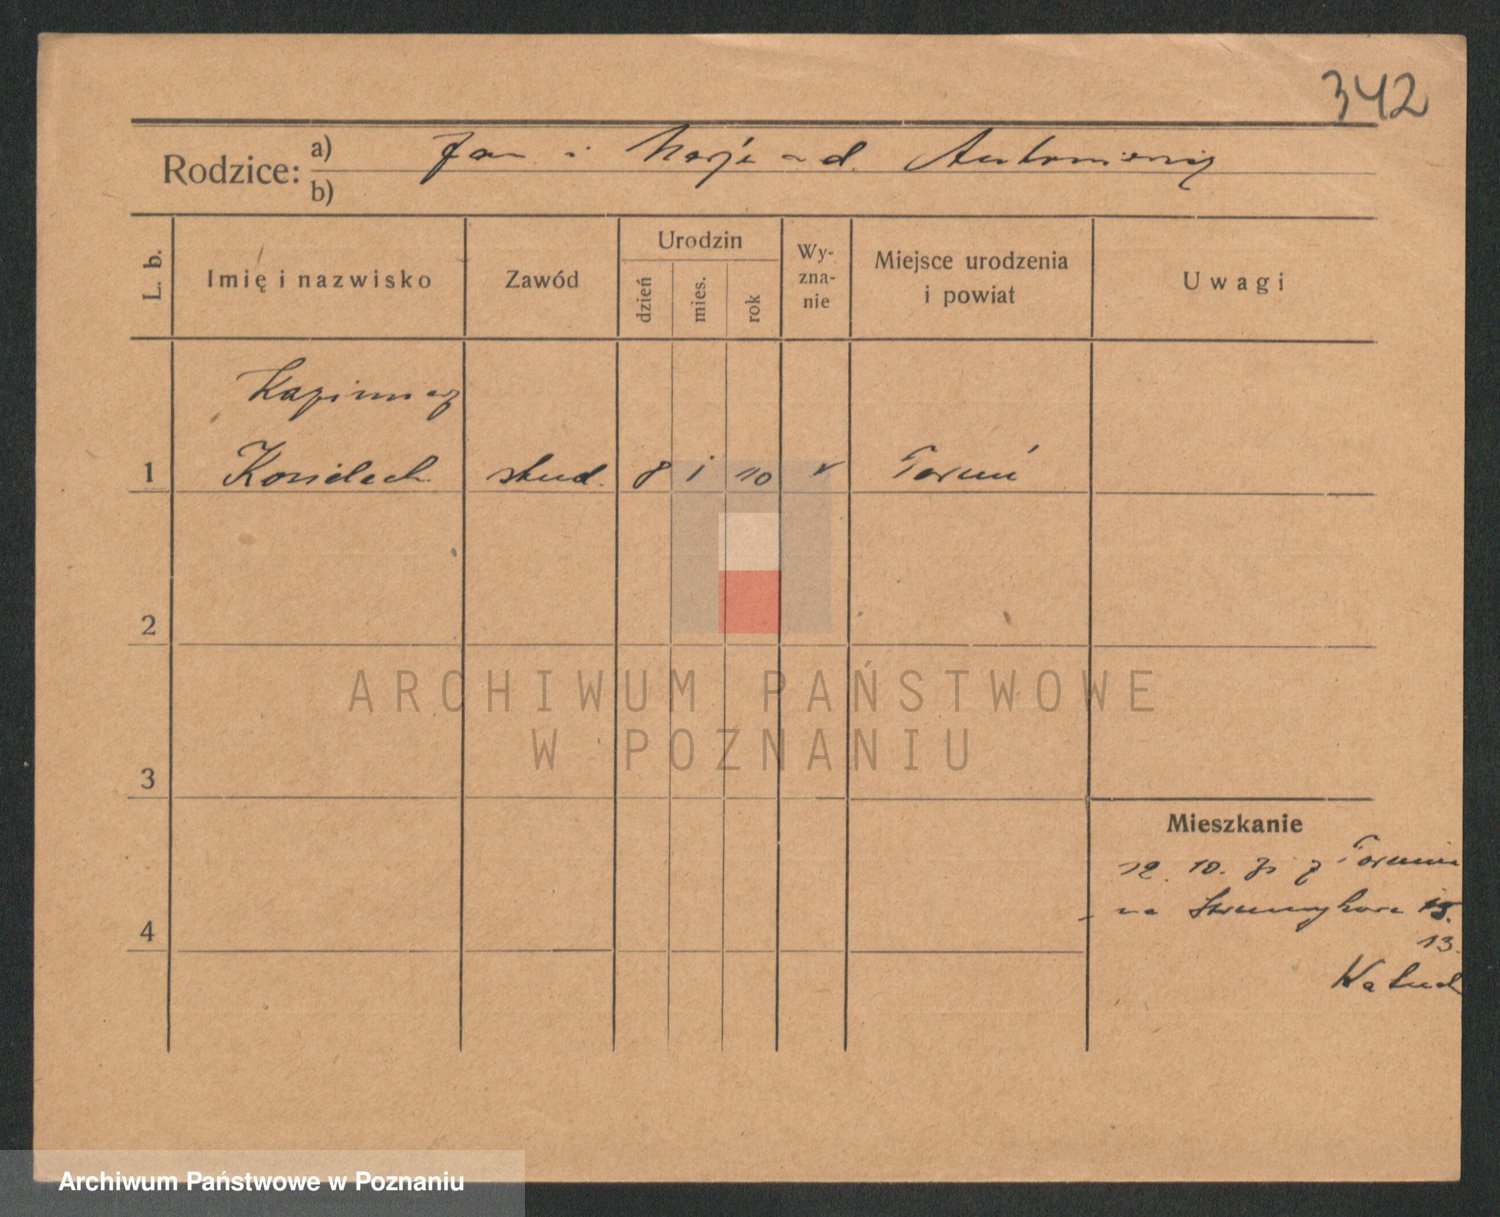 342
Rodzice: a) Jan i Marja z d.
b)
L. b.
Imię i nazwisko
Zawód
Urodzin
dzień
mies.
rok
Wy-
zna-
nie
Miejsce urodzenia
i powiat
Uwagi
Kazimierz
1 stud. 8 1 10 Toruń
2
3
4
Mieszkanie
12. 10. z Torunia
na
13.
ARCHIWUM PAŃSTWOWE
W POZNANIU
Archiwum Państwowe w Poznaniu